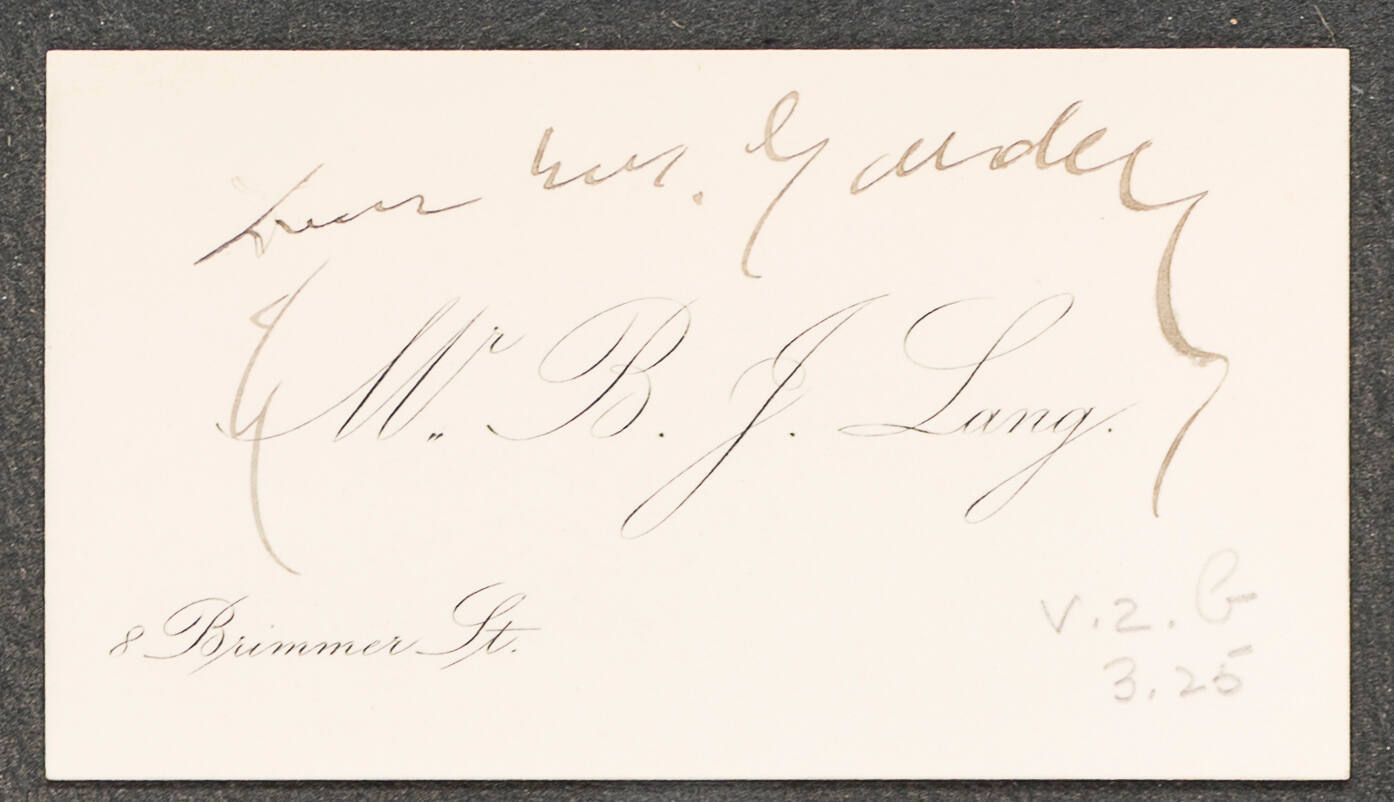 Dear Mrs. Gardner
Mr. B. J. Lang.
8 Brimmer St.
V. 2. G
3. 25